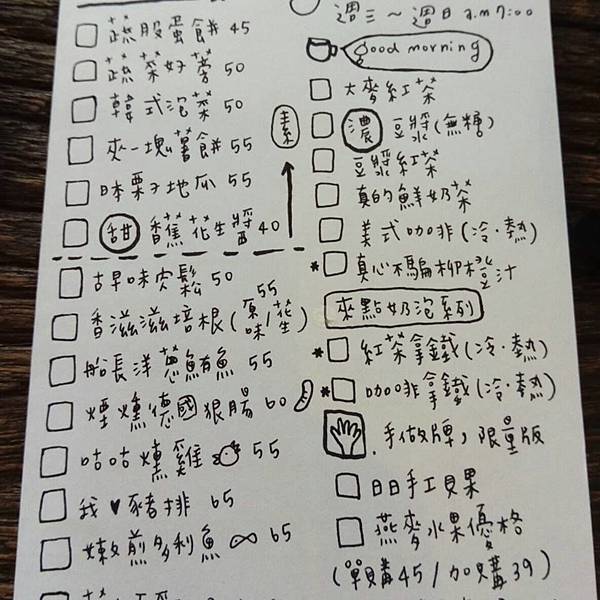 蔬服蛋餅 45
蔬菜好夯 50
韓式泡菜 50
夾一塊薯餅 55
日本栗子地瓜 55
甜 香蕉花生醬 40
素
古早味肉鬆 50
香滋滋培根(原味/花生) 55
船長洋蔥鮪魚 55
煙燻德國狠腸 60
咕咕燻雞 55
我♥豬排 65
嫩煎多利魚 65
週三～週日 a.m 7:00
good morning
大麥紅茶
濃 豆漿(無糖)
豆漿紅茶
真的鮮奶茶
美式咖啡(冷·熱)
*真心不騙柳橙汁
夾點奶泡系列
*紅茶拿鐵(冷·熱)
*咖啡拿鐵(冷·熱)
手做牌，限量版
日日手工貝果
燕麥水果優格
(單購45/加購39)